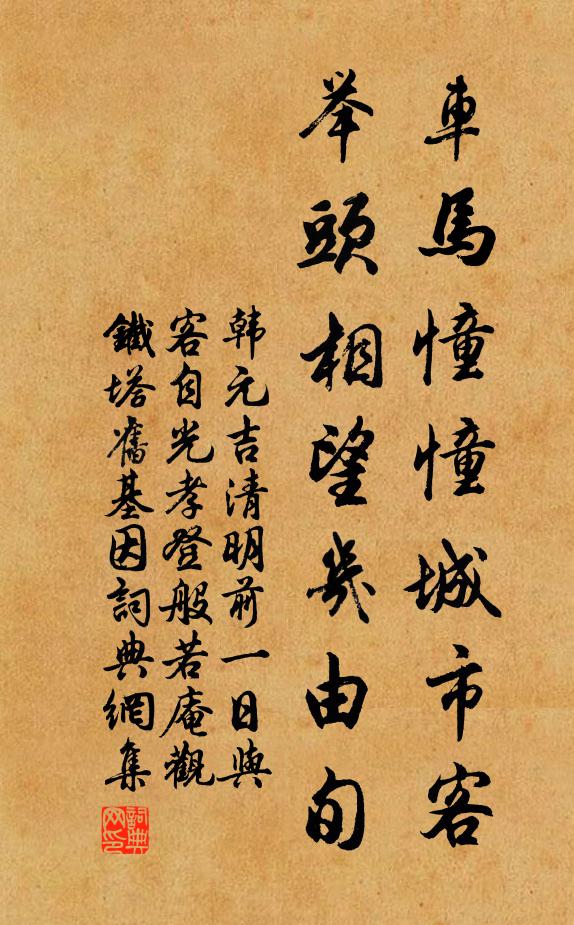 車馬憧憧城市客
举頭相望幾由旬
韩元吉清明前一日與
客自光孝登般若庵觀
鐵塔舊基因詞典網集
詞典
网印